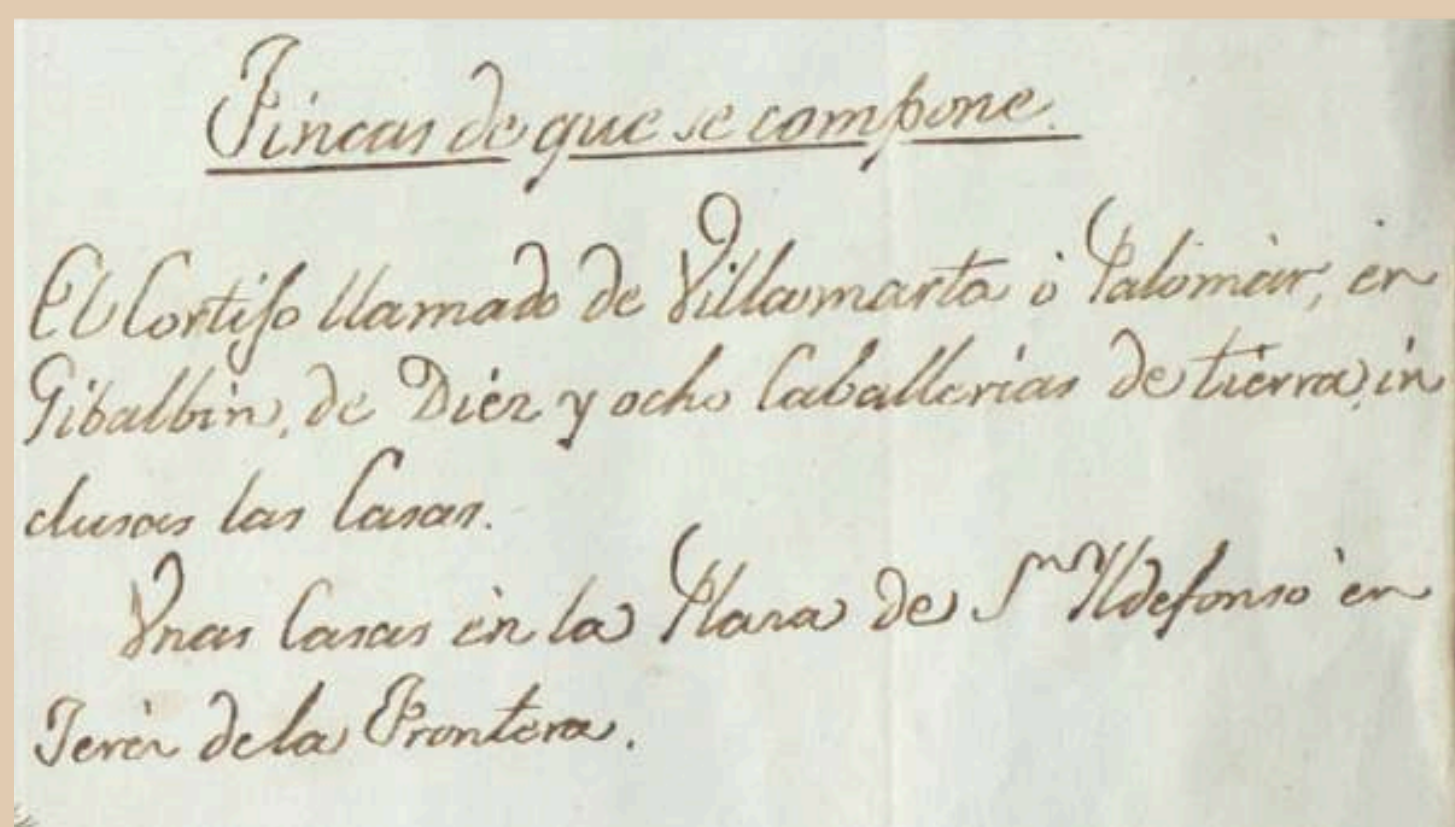 Fincas de que se compone.
El Cortijo llamado de Villamarta ó Palomár, en
Gibalbin, de Diez y ocho Caballerias de tierra, in
clusas las Casas.
Vnas Casas en la Plaza de Sⁿ Yldefonso en
Jeréz de la Frontera.